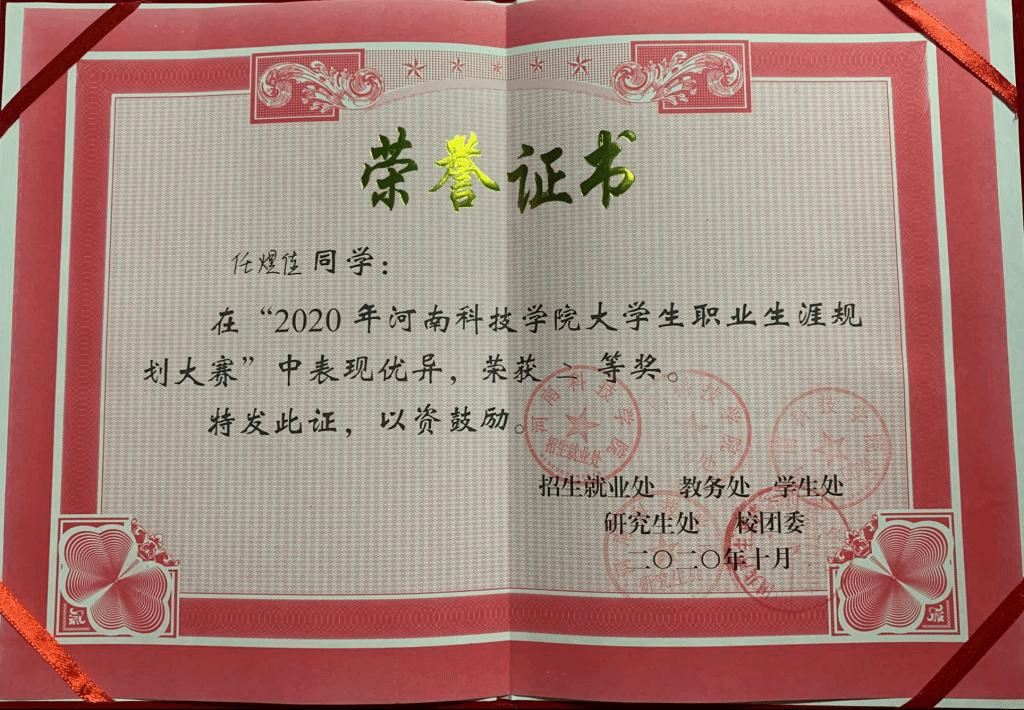 荣誉证书
任煜佳同学：
在“2020年河南科技学院大学生职业生涯规
划大赛”中表现优异，荣获二等奖。
特发此证，以资鼓励。
河南科技学院
招生就业处
招生就业处 教务处 学生处
研究生处 校团委
二〇二〇年十月
研究生处